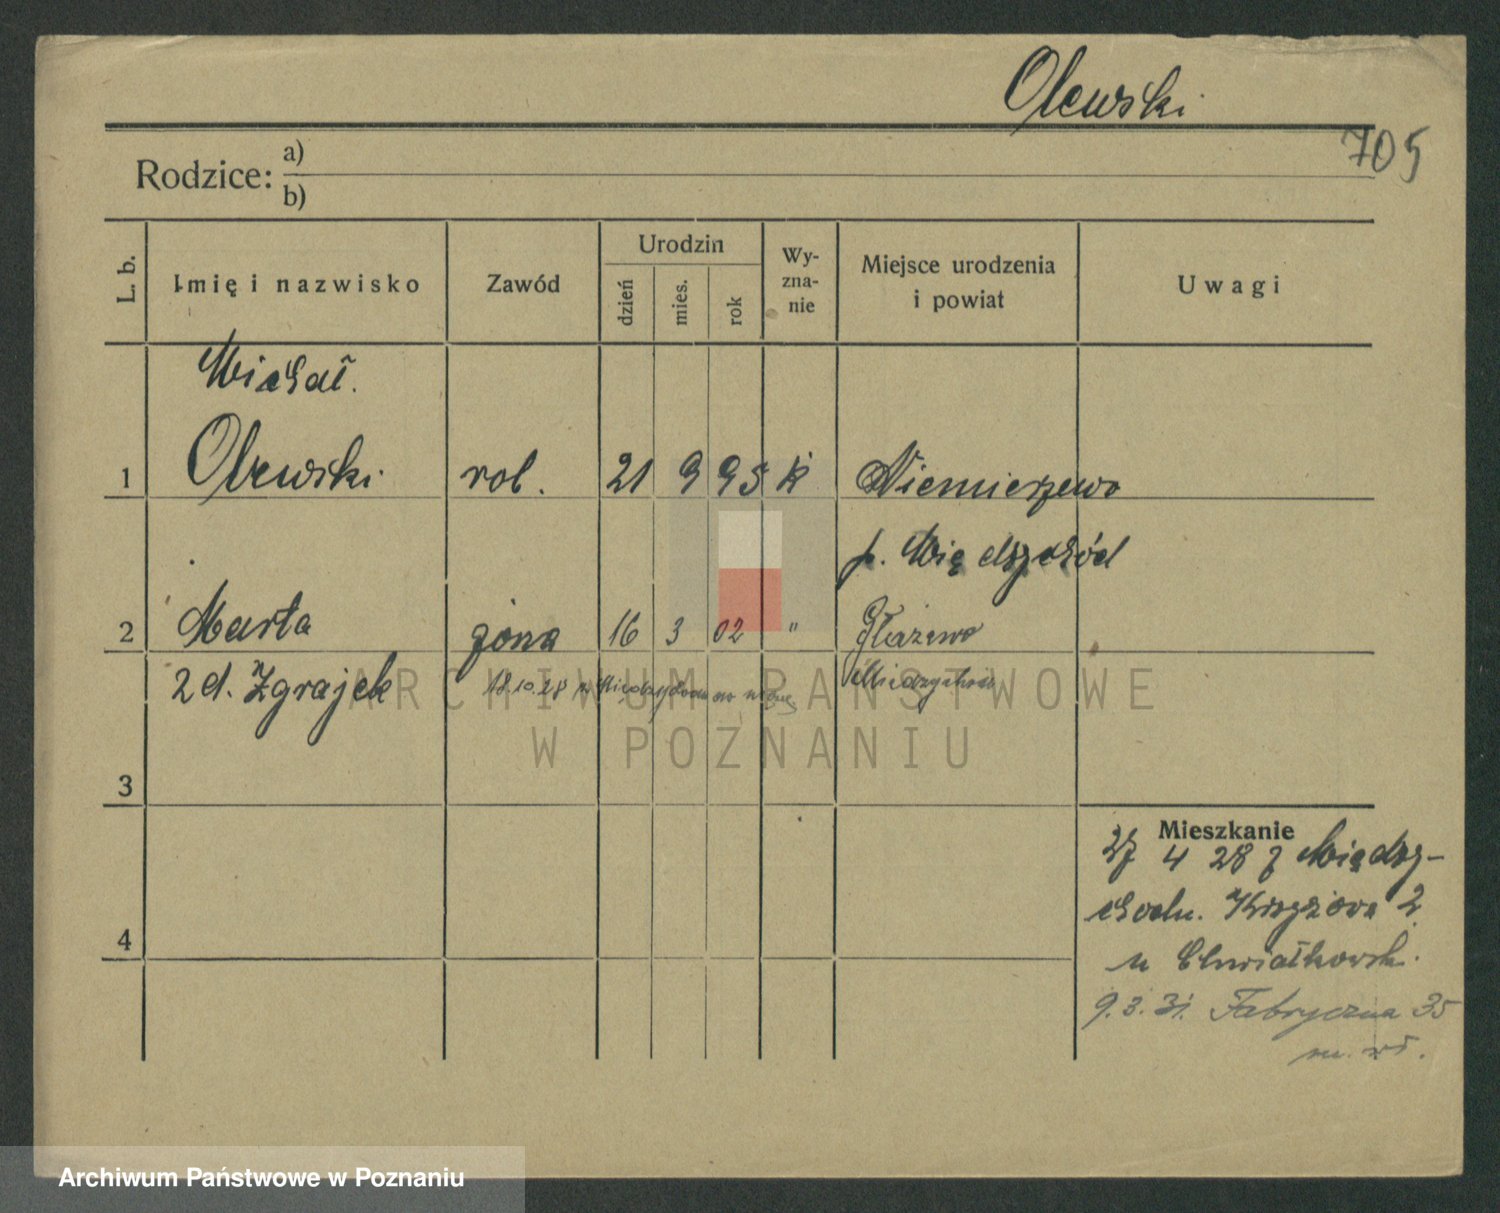 Olewski
705
Rodzice: a)
b)
L. b.
Imię i nazwisko
Zawód
Urodzin
dzień
mies.
rok
Wy-
zna-
nie
Miejsce urodzenia
i powiat
Uwagi
Michał.
1 Olewski rob. 21 9 95 k Niemierzewo
p. Międzychód
2 Marta żona 16 3 02 " Głażewo
2 d. Zgrajek 18.10.28 z Międzychodu Międzychód
3
4
Mieszkanie
27 4 28 z Między-
chodu. Krzyżowa 2
u Chwiałkowsk.
9.3.31. Fabryczna 35
ARCHIWUM PAŃSTWOWE
W POZNANIU
Archiwum Państwowe w Poznaniu